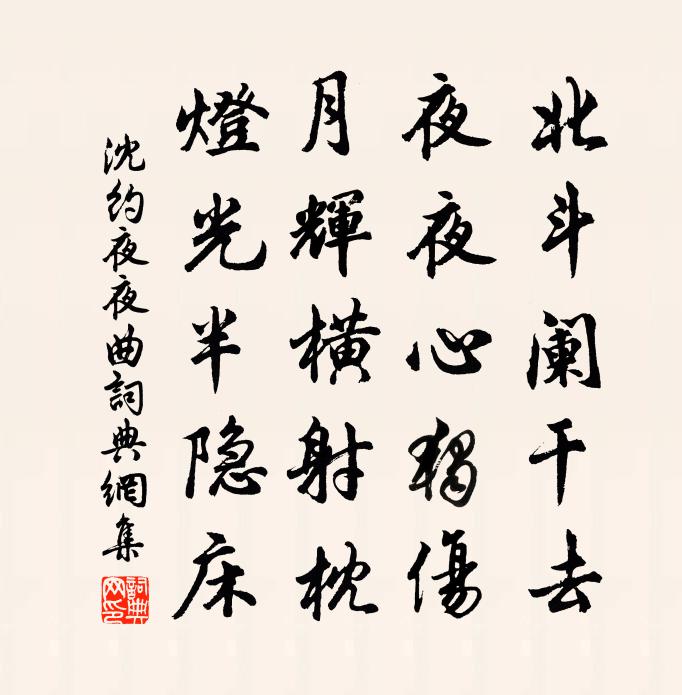 北斗阑干去
夜夜心獨傷
月輝橫射枕
燈光半隐床
沈约夜夜曲詞典網集
詞典网印